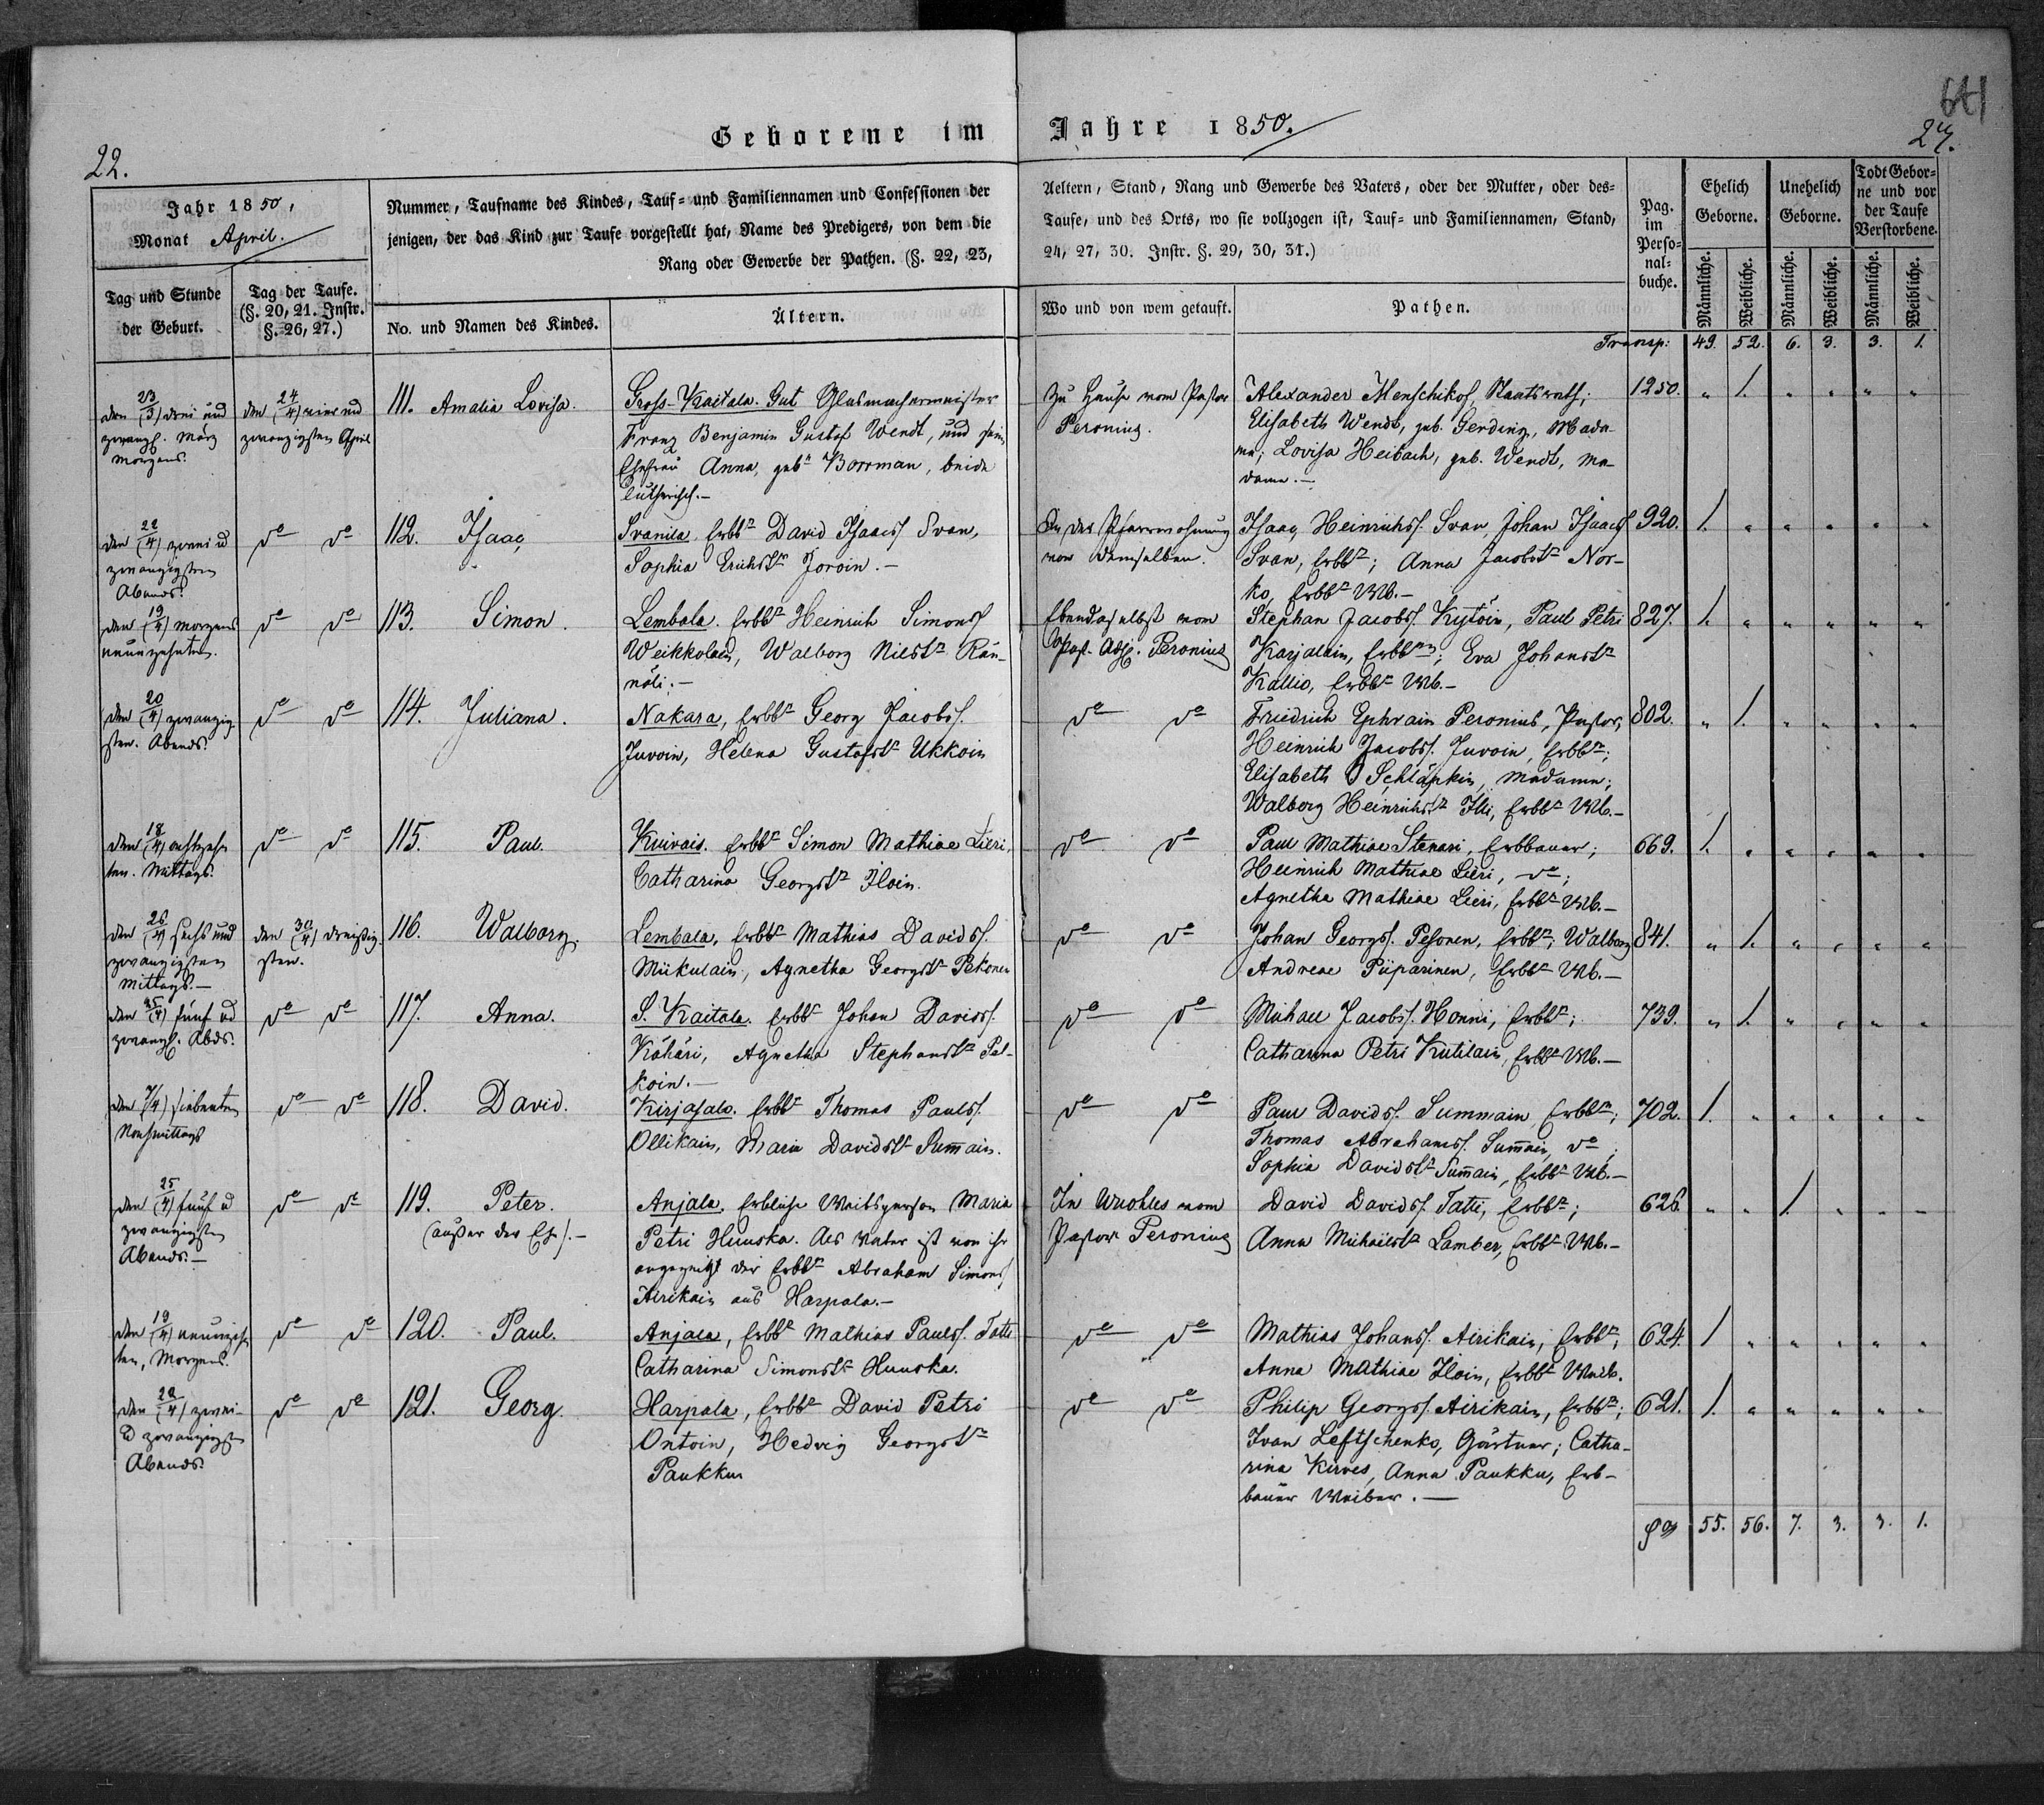 Geborene im Jahre 1850.
22.
641
24.
Jahr 1850,
Monat April.
Nummer, Taufname des Kindes, Tauf- und Familiennamen und Confessionen der
jenigen, der das Kind zur Taufe vorgestellt hat, Name des Predigers, von dem die
Rang oder Gewerbe der Pathen. (§. 22, 23,
Aeltern, Stand, Rang und Gewerbe des Vaters, oder der Mutter, oder des-
Taufe, und des Orts, wo sie vollzogen ist, Tauf- und Familiennamen, Stand,
24, 27, 30. Instr. §. 29, 30, 31.)
Pag.
im
Perso-
nal-
buche.
Ehelich
Geborne.
Unehelich
Geborne.
Todt Gebor-
ne und vor
der Taufe
Verstorbene.
Tag und Stunde
der Geburt.
Tag der Taufe.
(§. 20, 21. Instr.
§. 26, 27.)
No. und Namen des Kindes.
Ältern.
Wo und von wem getauft.
Pathen.
Männliche.
Weibliche.
Männliche.
Weibliche.
Männliche.
Weibliche.
Transp: 49. 52. 6. 3. 3. 1.
den (23/3) drei und
zwanzg. März
Morgens.
den (24/4) vier und
zwanzigsten April
111. Amalia Lovisa.
Gross-Kaitala. Gut Glasmachermeister
Franz Benjamin Gustaf Wendt, und sein
Ehefrau Anna, geb. Borrman, beide
lutherisch.-
Zu Hause vom Pastor
Peronius.
Alexander Menschikof, Staatsrath;
Elisabeth Wendt, geb. Gerding, Mada-
me; Lovisa Heibach, geb. Wendt, Ma-
dame.-
1250. " 1. " " " "
den (22/4) zwei u
zwanzigsten
Abends.
de de
112. Isaac,
Svanila Erbbr David Isaacs. Svan,
Sophia Erichstr Joroin.-
In der Pfarrwohnung
von demselben.
Isaac Heinrichs. Svan, Johan Isaacs.
Svan, Erbbr; Anna Jacobstr Nor-
ko, Erbbr Wb.-
920. 1. " " " " "
den (19/4) morgens
neunzehnten.
de de
113. Simon.
Lembala. Erbbr Heinrich Simons.
Weikkolain, Walborg Nilstr Rän-
näli.-
Ebendaselbst vom
Past. Adj. Peronius
Stephan Jacobs. Kytöin, Paul Petri
Karjalain, Erbbrn; Eva Johanstr
Kallio, Erbbr Wb.-
827. 1. " " " " "
den (20/4) zwanzig-
sten. Abends.
de de
114. Juliana.
Nakara, Erbbr Georg Jacobs.
Juvoin, Helena Gustafstr Ukkoin
de de
Friedrich Ephraim Peronius, Pastor,
Heinrich Jacobs. Juvoin, Erbbr;
Elisabeth Schläpkin, Madame;
Walborg Heinrichstr Illi, Erbbr Wb.-
802. " 1. " " " "
den (18/4) achtzehn
ten. Mittags.
de de
115. Paul.
Kuivais. Erbbr Simon Mathiae Lieri,
Catharina Georgstr Iloin.
de de
Paul Mathiae Stenari, Erbbauer;
Heinrich Mathiae Lieri, de;
Agnetha Mathiae Lieri, Erbbr Wb.-
669. 1. " " " " "
den (26/4) sechs und
zwanzigsten
Mittags.-
den (30/4) dreißig-
sten.
116. Walborg.
Lembala, Erbbr Mathias Davids.
Miikulain, Agnetha Georgstr Pekonen
de de
Johan Georgs. Pesonen, Erbbr; Walborg
Andreae Piiparinen, Erbbr Wb.-
841. " 1. " " " "
den (25/4) fünf ud
zwanzg. Abds.
de de
117. Anna.
S. Kaitala. Erbbr Johan Davids.
Köhäri, Agnetha Stephanstr Pal-
koin.-
de de
Michael Jacobs. Honni, Erbbr;
Catharina Petri Kutilain, Erbbr Wb.-
739. " 1. " " " "
den (7/4) siebenten
Nachmittags
de de
118. David.
Kirjasalo. Erbbr Thomas Pauls.
Ollikain, Maria Davidstr Rummain.
de de
Paul Davids. Summain, Erbbr;
Thomas Abrahams. Summain, de;
Sophia Davidstr Summain, Erbbr Wb.-
702. 1. " " " " "
den (25/4) fünf u
zwanzigsten
Abends.-
de de
119. Peter.
(außer der Ehe).-
Anjala. Erbliche Weibsperson Maria
Petri Huuska. Als Vater ist von ihr
angezeigt der Erbbr Abraham Simons.
Airikain aus Harpala.-
In Wuohles vom
Pastor Peronius
David Davids. Tatti, Erbbr;
Anna Michaelstr Lamber, Erbbr Wb.-
626. " " 1. " " "
den (19/4) neunzehn
ten, Morgens.
de de
120. Paul.
Anjala, Erbbr Mathias Pauls. Tatti
Catharina Simonstr Huuska.
de de
Mathias Johans. Airikain, Erbbr;
Anna Mathiae Iloin, Erbbr Weib.
624. 1 " " " " "
den (22/4) zwei-
u zwanzigsten
Abends.
de de
121. Georg.
Harpala, Erbbr David Petri
Ontoin, Hedvig Georgstr
Paukku
de de
Philip Georgs. Airikain, Erbbr;
Ivan Leftschenko, Gärtner; Catha-
rina Kirves, Anna Paukku, Erb-
bauer Weiber.-
621. 1. " " " " "
55. 56. 7. 3. 3. 1.